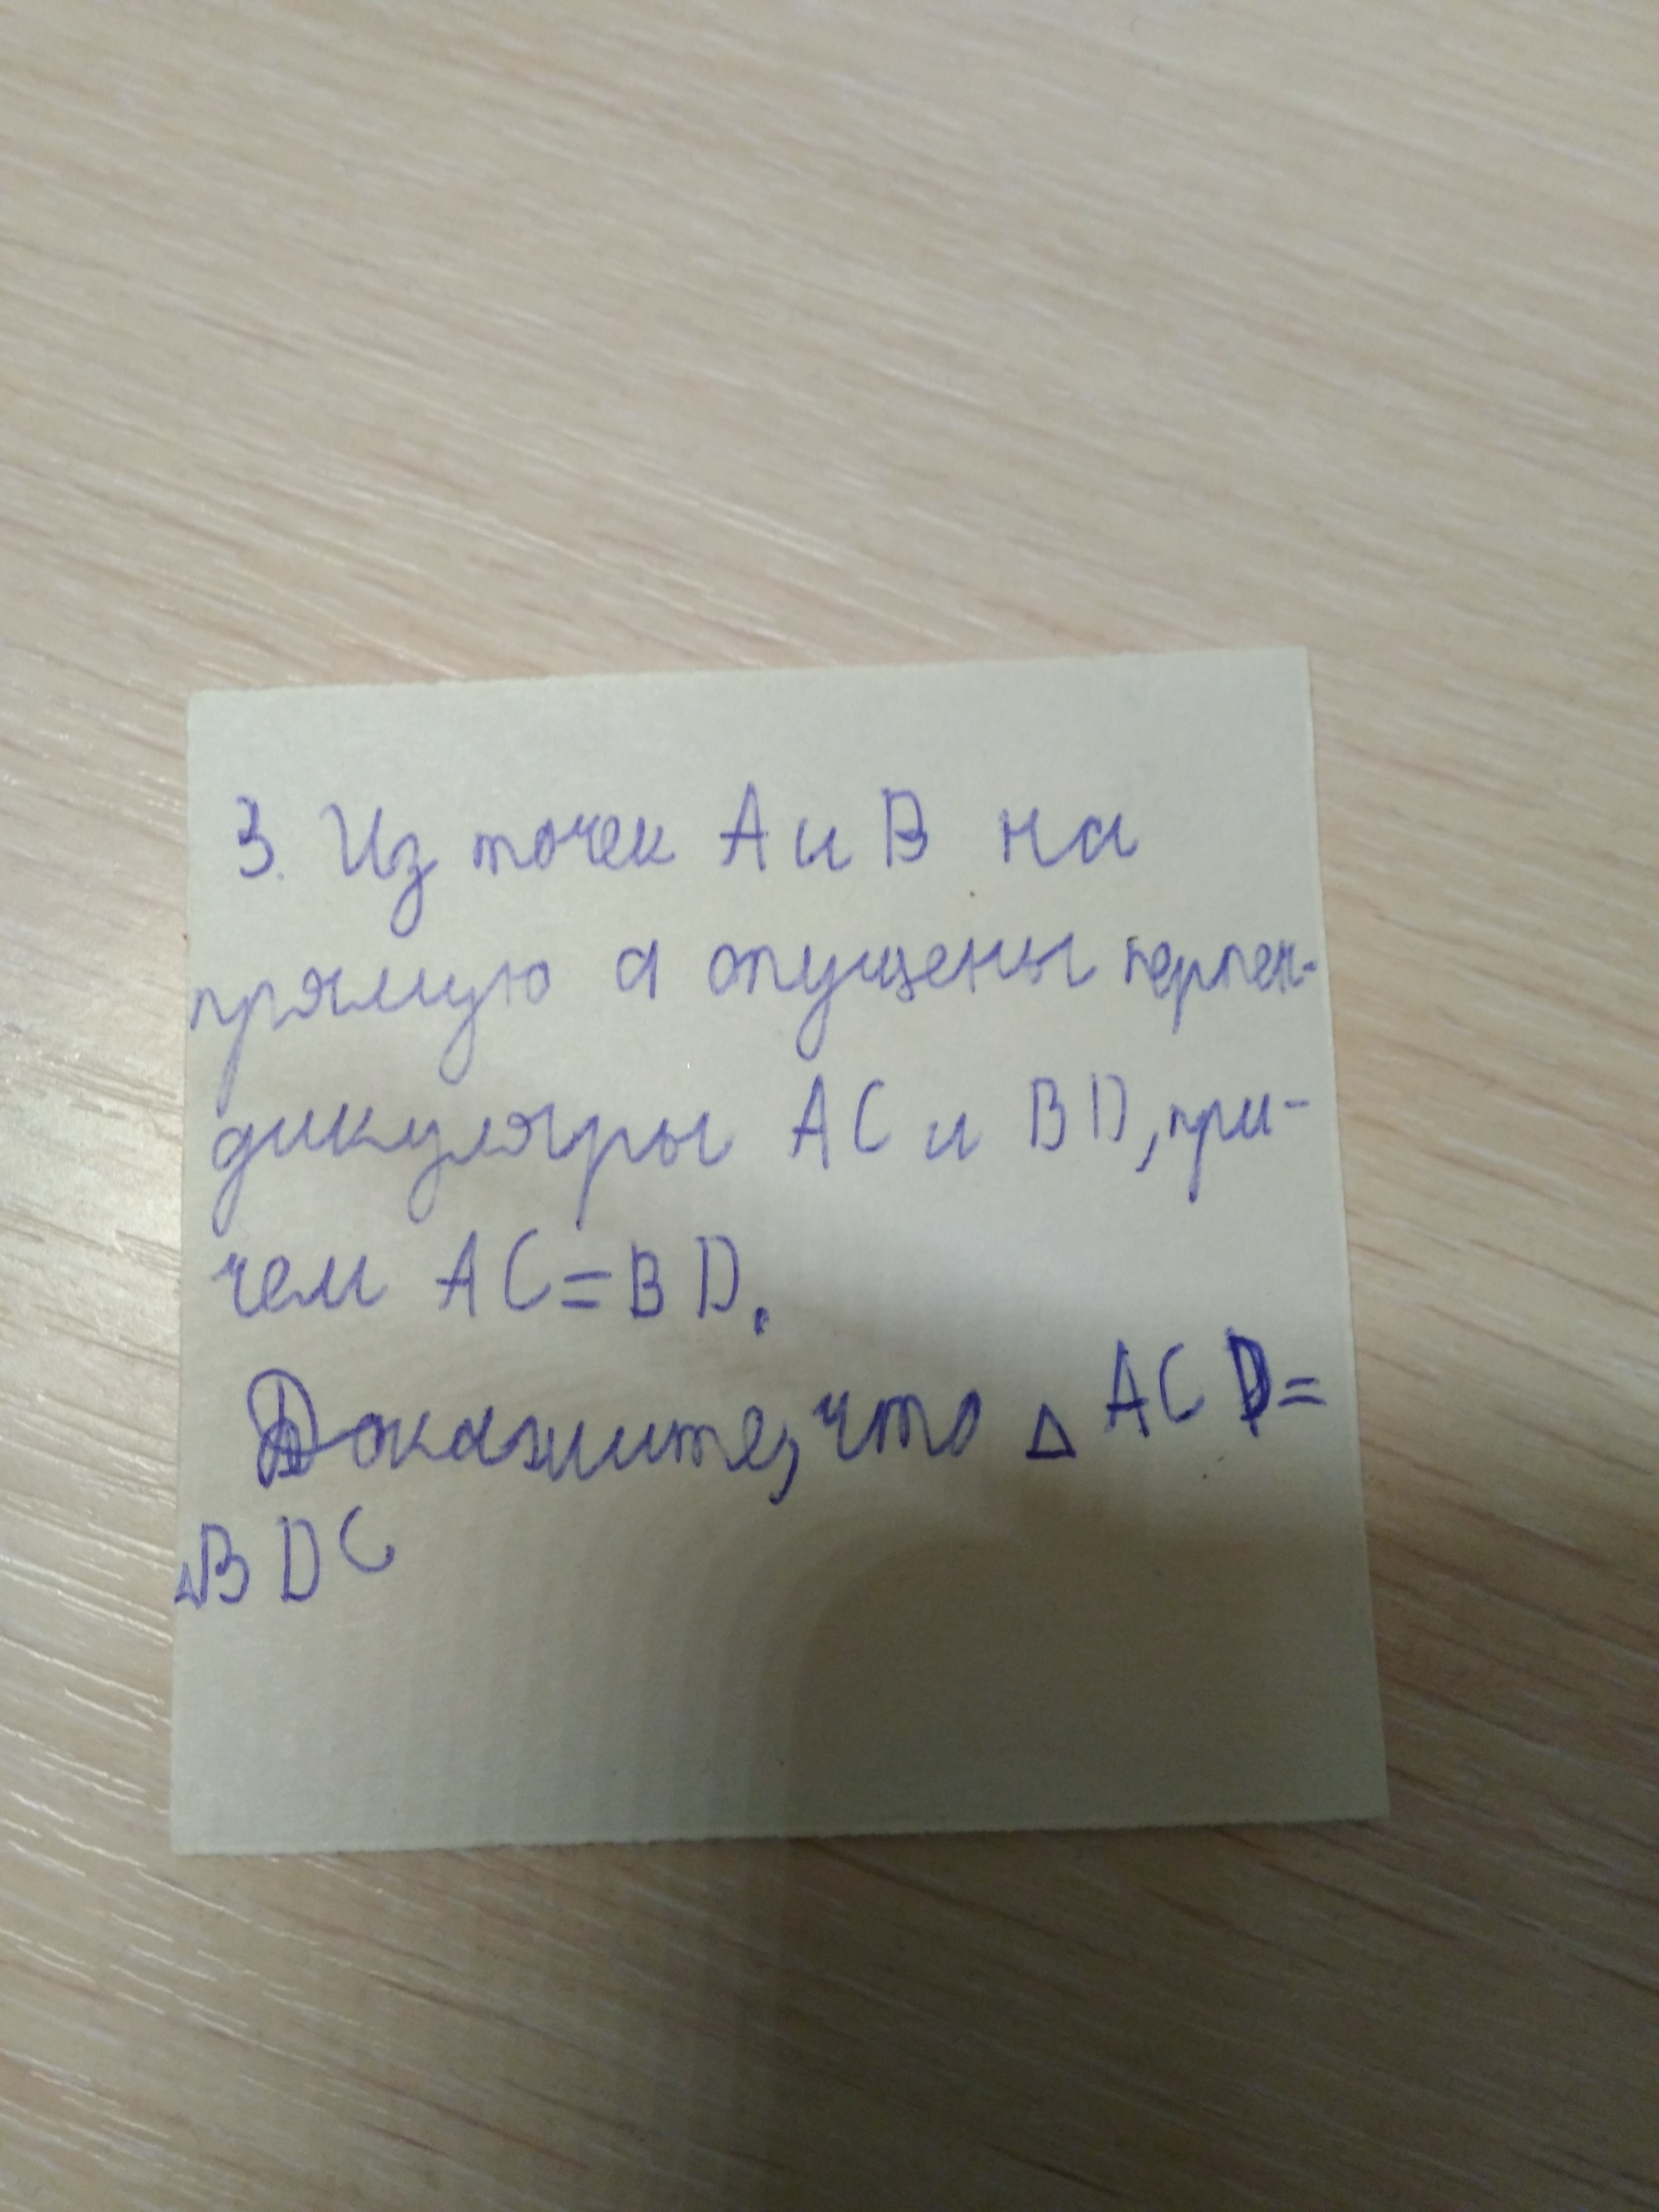 3. Из точек A и B на
прямую a опущены перпен-
дикуляры AC и BD, при-
чем AC=BD.
Докажите, что △ ACD=
△BDC